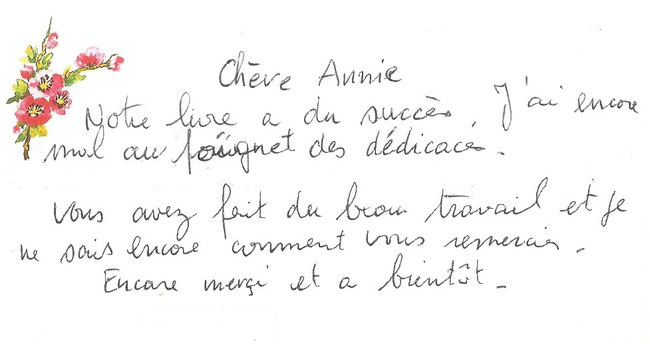 Chère Annie
Notre livre a du succès. J'ai encore
mal au poignet des dédicaces.
Vous avez fait du beau travail et je
ne sais encore comment vous remercier.
Encore merçi et a bientôt.